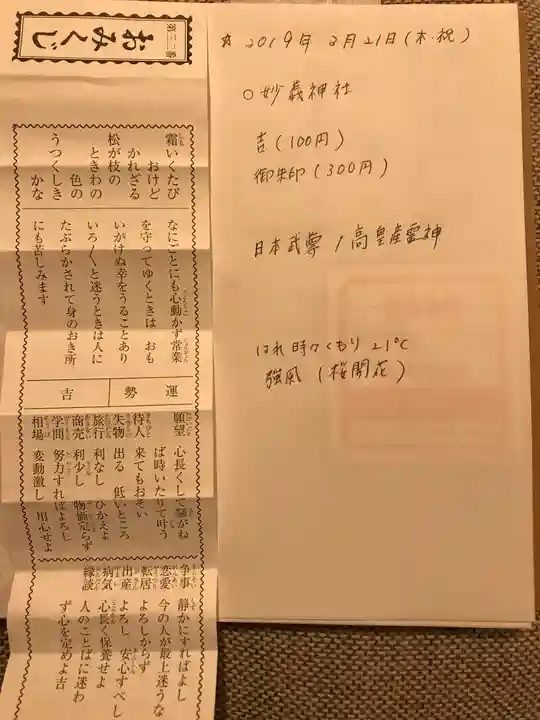 第三二番
おみくじ
霜いくたび
おけど
かれざる
松が枝の
ときわの
色の
うつくしき
かな
なにごとにも心動かず常業
を守ってゆくときは おも
いがけぬ幸をうることあり
いろ〱と迷うときは人に
たぶらかされて身のおき所
にも苦しみます
運勢 吉
願望 心長くして騒がね
ば時いたりて叶う
待人 来てもおそい
失物 出る 低いところ
旅行 利なし ひかえよ
商売 利少し 物価定らず
学問 努力すればよろし
相場 変動激し 用心せよ
争事 静かにすればよし
恋愛 今の人が最上迷うな
転居 よろしからず
出産 よろし 安心すべし
病気 心長く保養せよ
縁談 人のことばに迷わ
ず心を定めよ吉
☆ 2019年 3月21日(木・祝)
○ 妙義神社
吉(100円)
御朱印(300円)
日本武尊 / 高皇産霊神
はれ 時々くもり 21℃
強風 (桜開花)